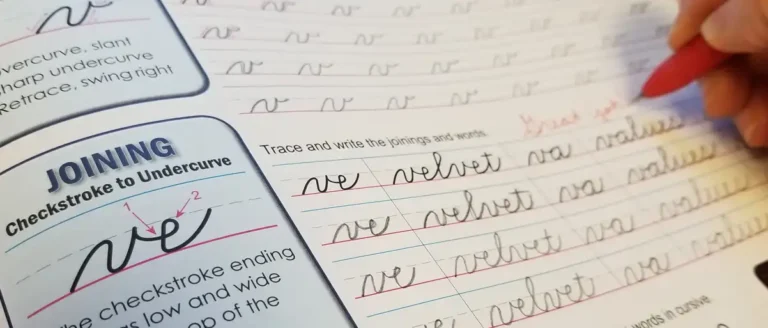 v
vercurve, slant
harp undercurve
Retrace, swing right
JOINING
Checkstroke to Undercurve
1 2
ve
he checkstroke ending
s low and wide
op of the
v v v v v v
ve v v v v v v
v v v v v v v
v v v v v v v
Great
Trace and write the joinings and words.
ve velvet va values
ve velvet va values
ve velvet va values
ve velvet va value
words in cursive